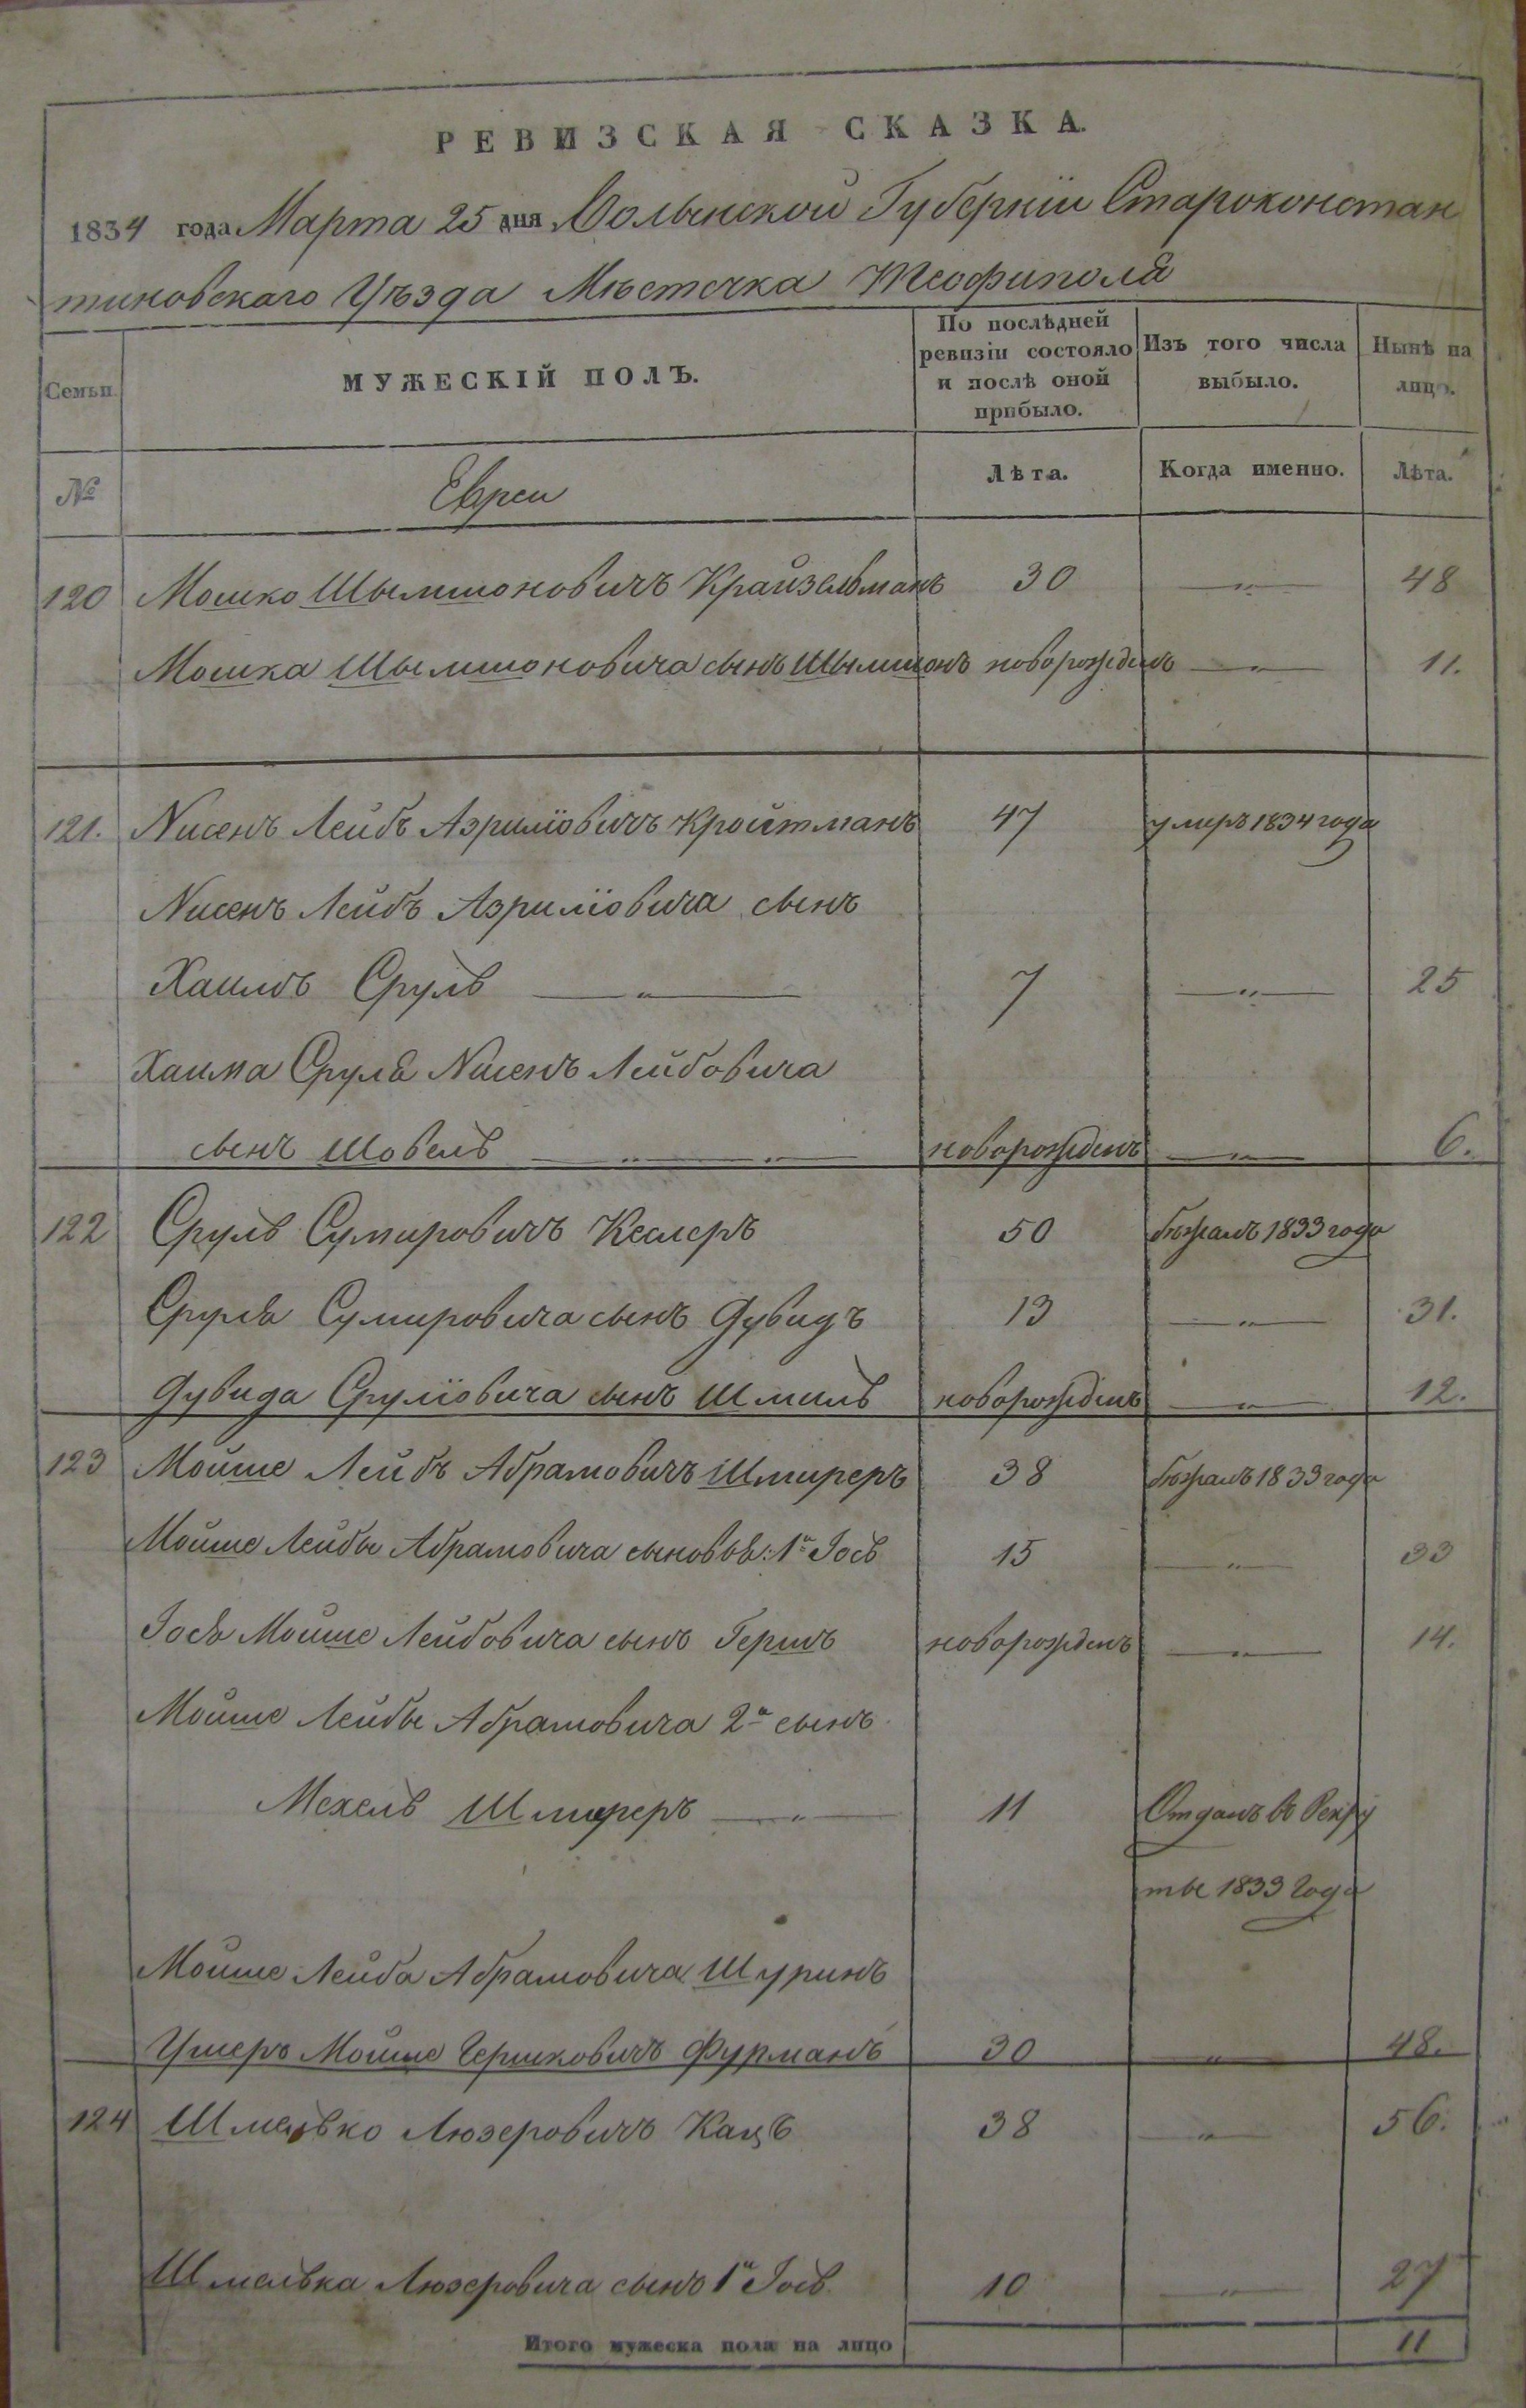 РЕВИЗСКАЯ СКАЗКА.
1834 года Марта 25 дня Волынской Губерніи Староконстан
тиновскаго Уѣзда Мѣстечка Теофиполя
Семьи.
МУЖЕСКІЙ ПОЛЪ.
По послѣдней ревизіи состояло и послѣ оной прибыло.
Изъ того числа выбыло.
Нынѣ на лицо.
№
Евреи
Лѣта.
Когда именно.
Лѣта.
120 Мошко Шымшоновичъ Крайзельманъ 30 —„— 48
Мошка Шымшоновича сынъ Шымшонъ новорожденъ —„— 11.
121. Нисенъ Лейбъ Азриліовичъ Кройтманъ 47 умеръ 1834 года
Нисенъ Лейбъ Азриліовича сынъ
Хаимъ Сруль —„— 7 —„— 25
Хаима Сруля Нисенъ Лейбовича
сынъ Шовель —„—„— новорожденъ —„— 6.
122 Сруль Сумировичъ Кеслеръ 50 бѣжалъ 1833 года
Сруля Сумировича сынъ Дувидъ 13 —„— 31.
Дувида Сруліовича сынъ Шмиль новорожденъ —„— 12.
123 Мойше Лейбъ Абрамовичъ Шмиреръ 38 бѣжалъ 1833 года
Мойше Лейбы Абрамовича сыновья: 1й Іось 15 —„— 33
Іося Мойше Лейбовича сынъ Гершъ новорожденъ —„— 14.
Мойше Лейбы Абрамовича 2й сынъ
Мехель Шмиреръ —„— 11 Отданъ въ Рекру
ты 1833 Года
Мойше Лейба Абрамовича Шуринъ
Ушеръ Мойше Гершковичъ Фурманъ 30 —„— 48.
124 Шмелько Люзеровичъ Кацъ 38 —„— 56.
Шмелька Люзеровича сынъ 1й Іось 10 —„— 27
Итого мужеска пола на лицо 11